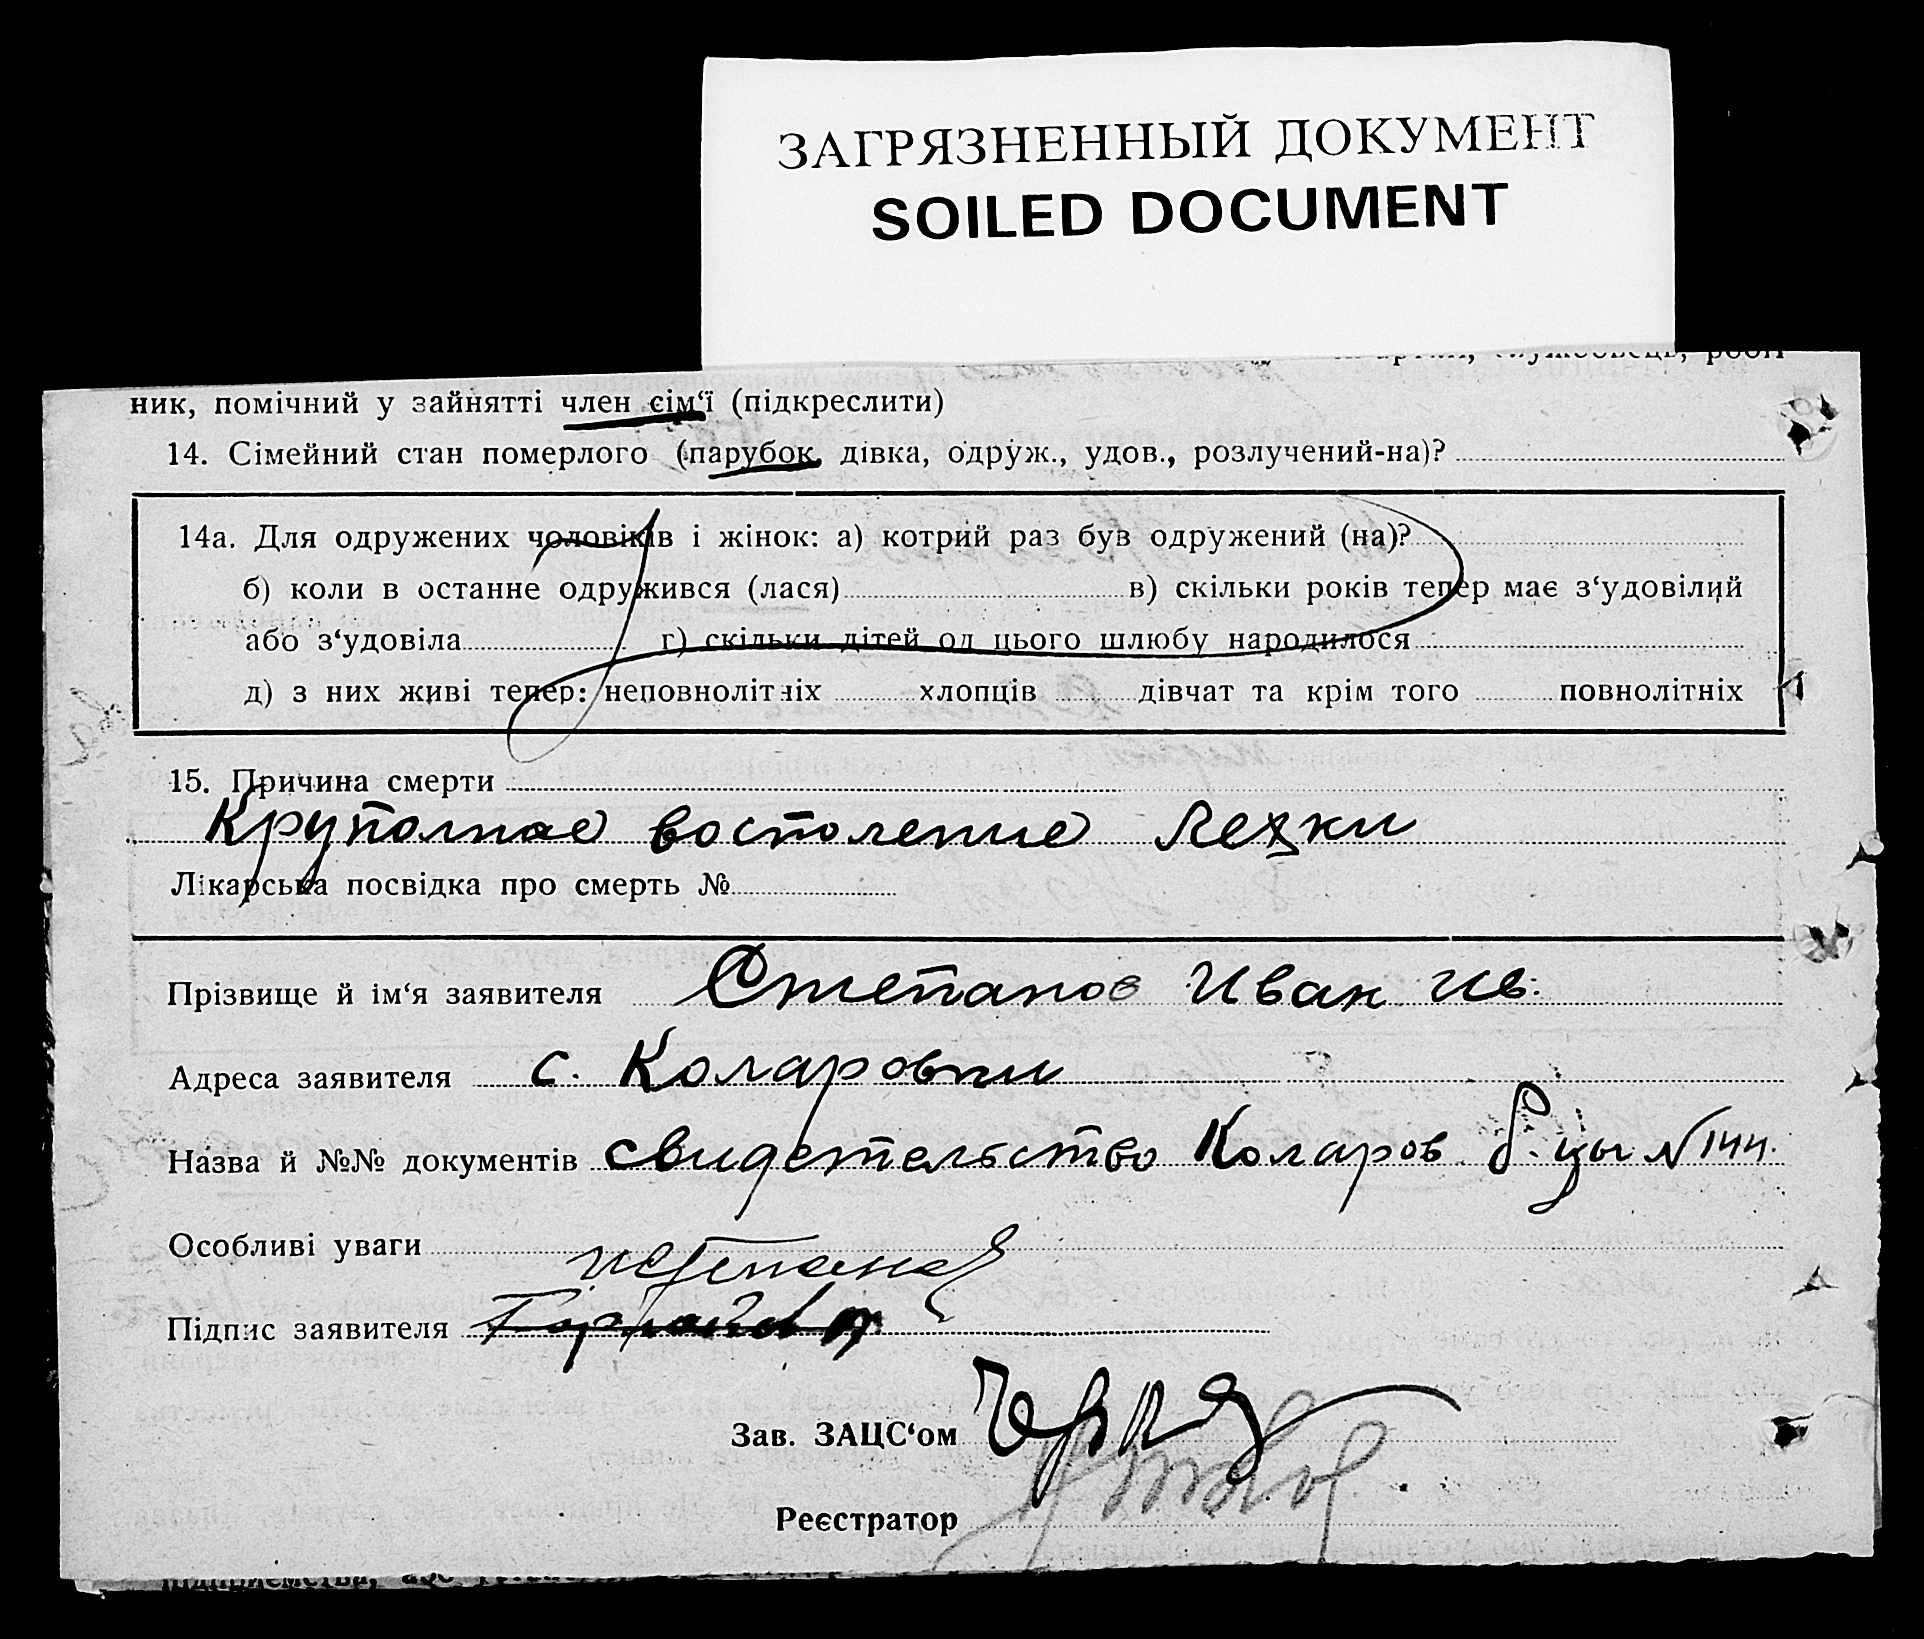 ЗАГРЯЗНЕННЫЙ ДОКУМЕНТ
SOILED DOCUMENT
ник, помічний у зайнятті член сім‘ї (підкреслити)
14. Сімейний стан померлого (парубок, дівка, одруж., удов., розлучений-на)?
14а. Для одружених чоловіків і жінок: а) котрий раз був одружений (на)?
б) коли в останне одружився (лася) в) скільки років тепер має з‘удовілий
або з‘удовіла г) скільки дітей од цього шлюбу народилося
д) з них живі тепер: неповнолітніх хлопців дівчат та крім того повнолітніх
15. Причина смерти
Крупозное восполение
Лікарська посвідка про смерть №
Прізвище й ім‘я заявителя Степанов Иван Ив.
Адреса заявителя с. Коларовки
Назва й №№ документів свидетельство Коларов. б-цы N 144.
Особливі уваги
Підпис заявителя
Зав. ЗАЦС‘ом
Реєстратор